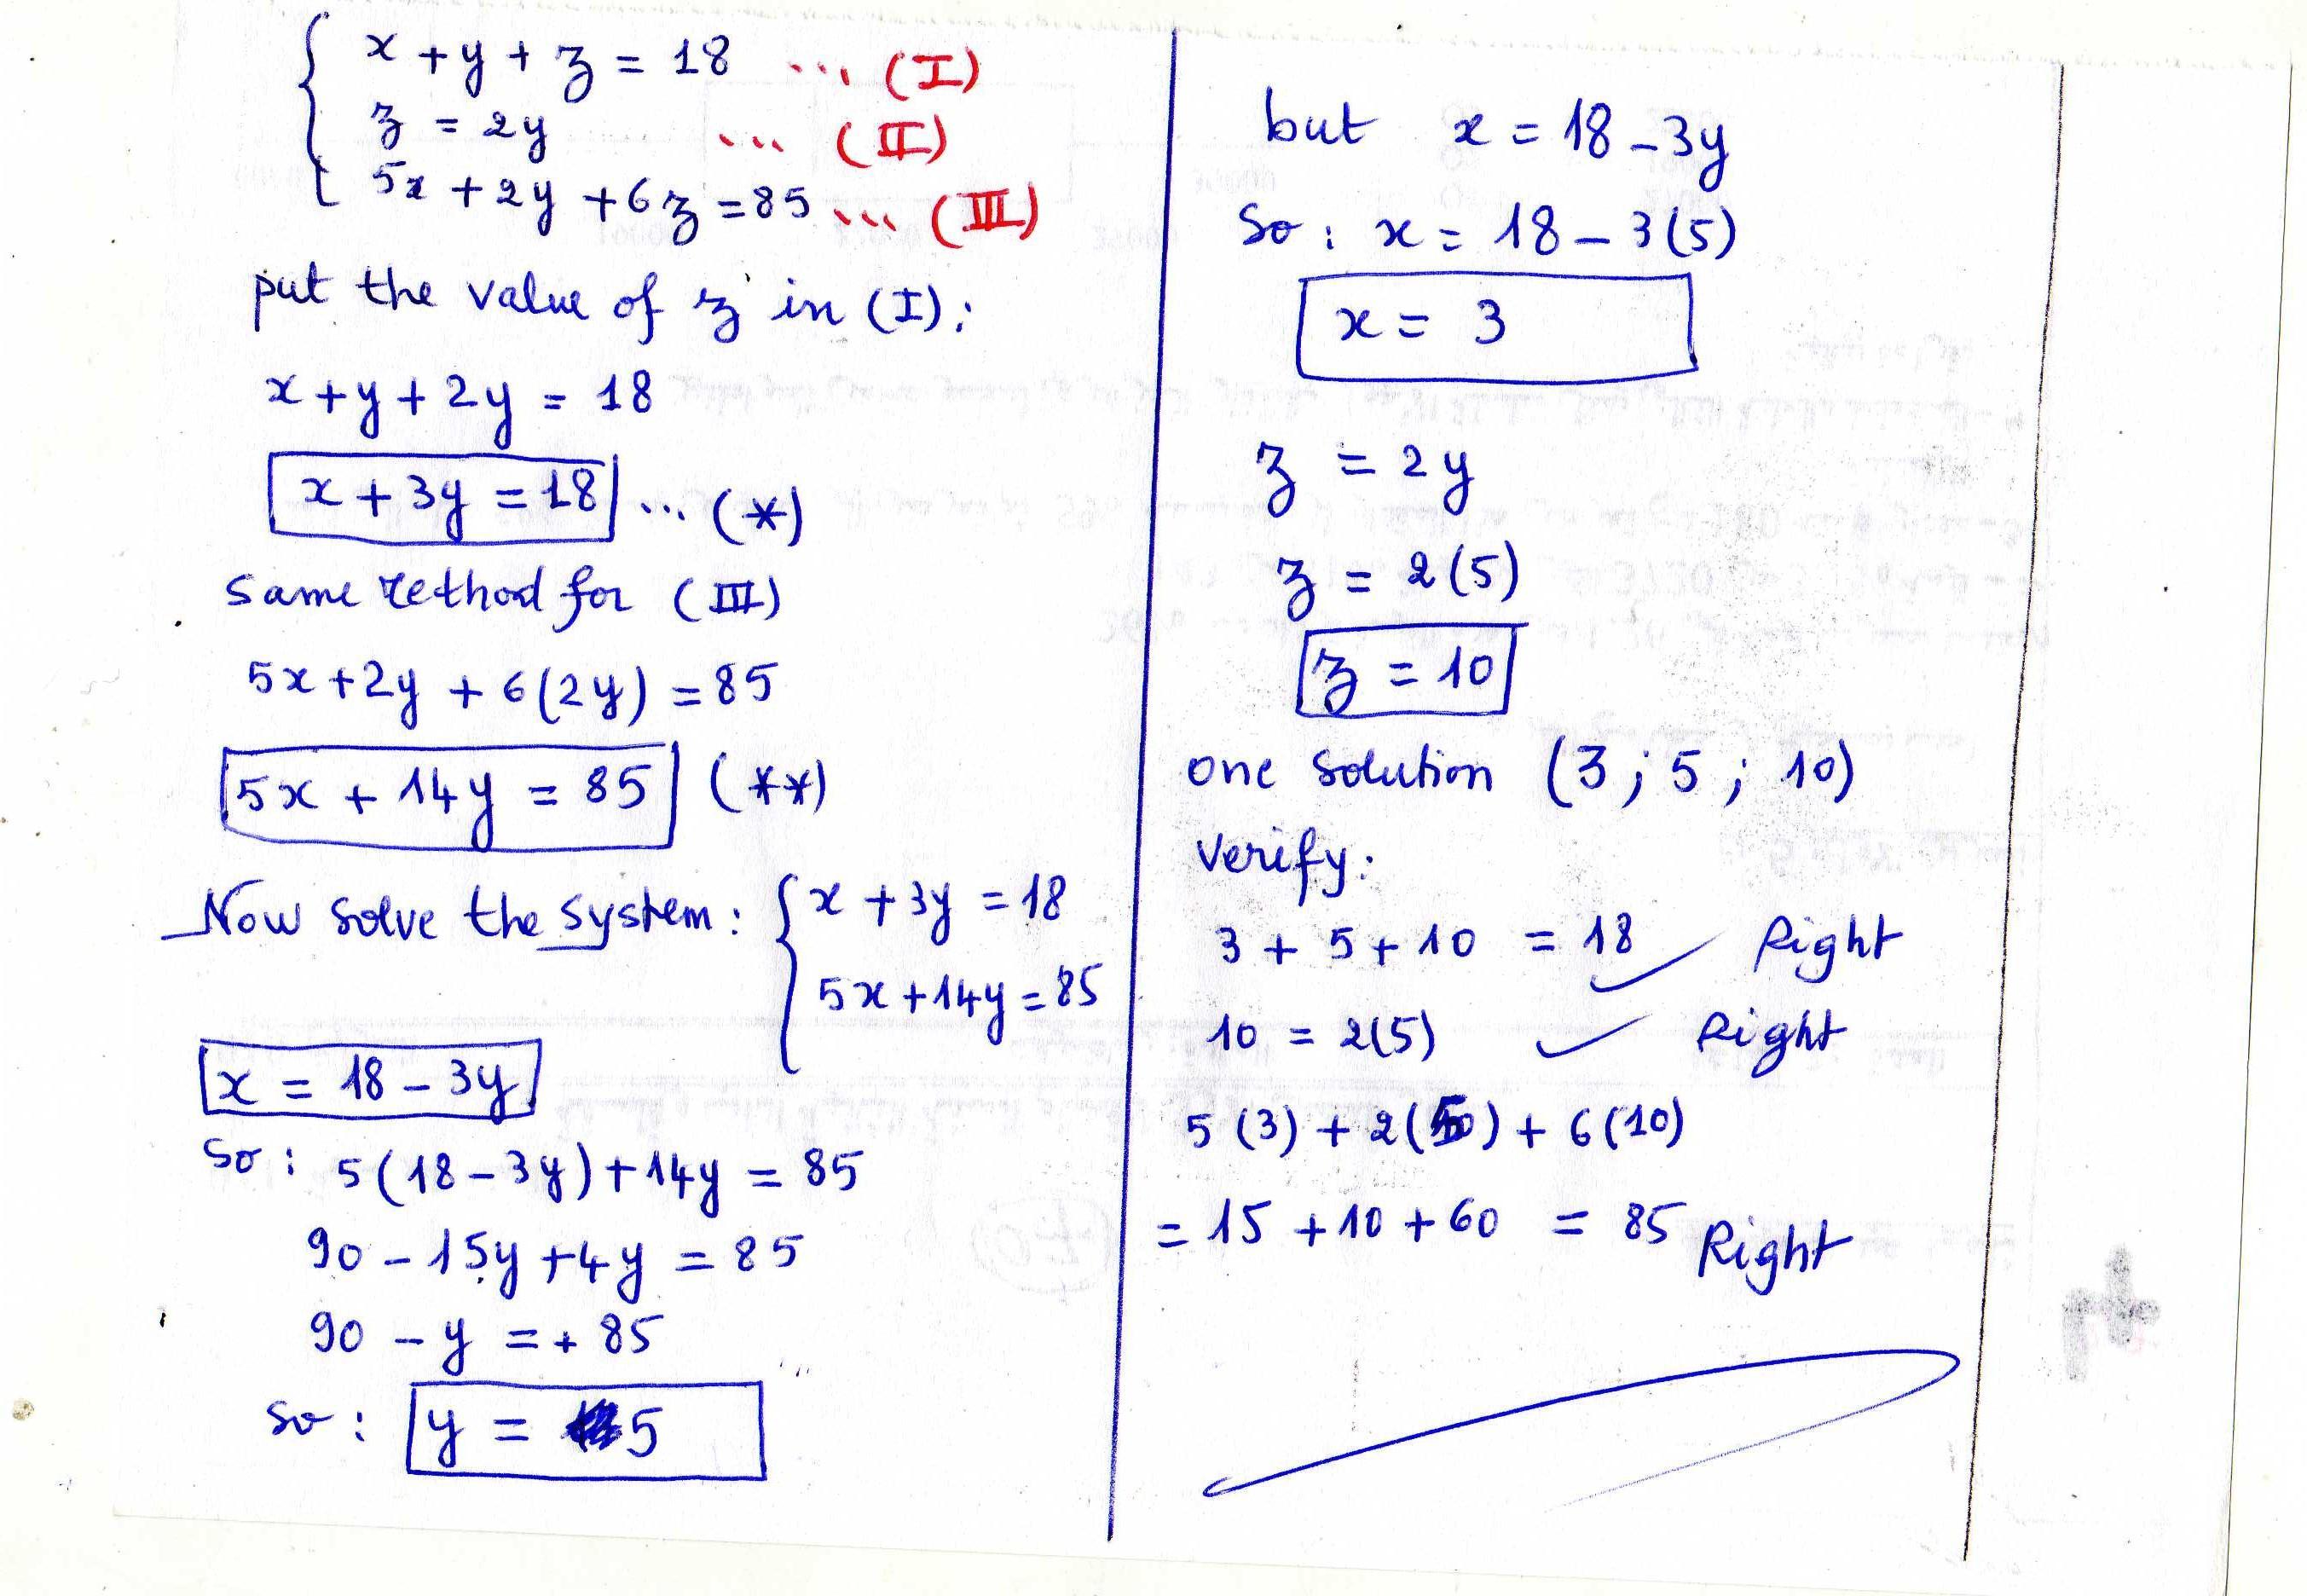 x + y + z = 18 ... (I)
z = 2y ... (II)
5x + 2y + 6z = 85 ... (III)
put the value of z in (I):
x + y + 2y = 18
x + 3y = 18 ... (*)
same rethod for (III)
5x + 2y + 6(2y) = 85
5x + 14y = 85 (**)
Now solve the system: x + 3y = 18
5x + 14y = 85
x = 18 - 3y
so: 5(18 - 3y) + 14y = 85
90 - 15y + 4y = 85
90 - y = + 85
so: y = 5
but x = 18 - 3y
so: x = 18 - 3(5)
x = 3
z = 2y
z = 2(5)
z = 10
one solution (3; 5; 10)
Verify:
3 + 5 + 10 = 18 ✓ Right
10 = 2(5) ✓ Right
5(3) + 2(5) + 6(10)
= 15 + 10 + 60 = 85 Right